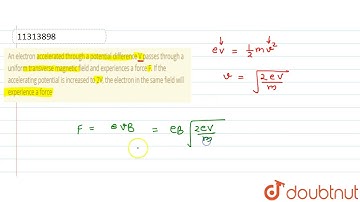 11313898
An electron accelerated through a potential different V passes through a
uniform transverse magnetic field and experiences a force F. If the
accelerating potential is increased to 2V, the electron in the same field will
experience a force
eV = 1/2 mv²
v = √(2eV/m)
F = evB = eB √(2eV/m)
doubtnut